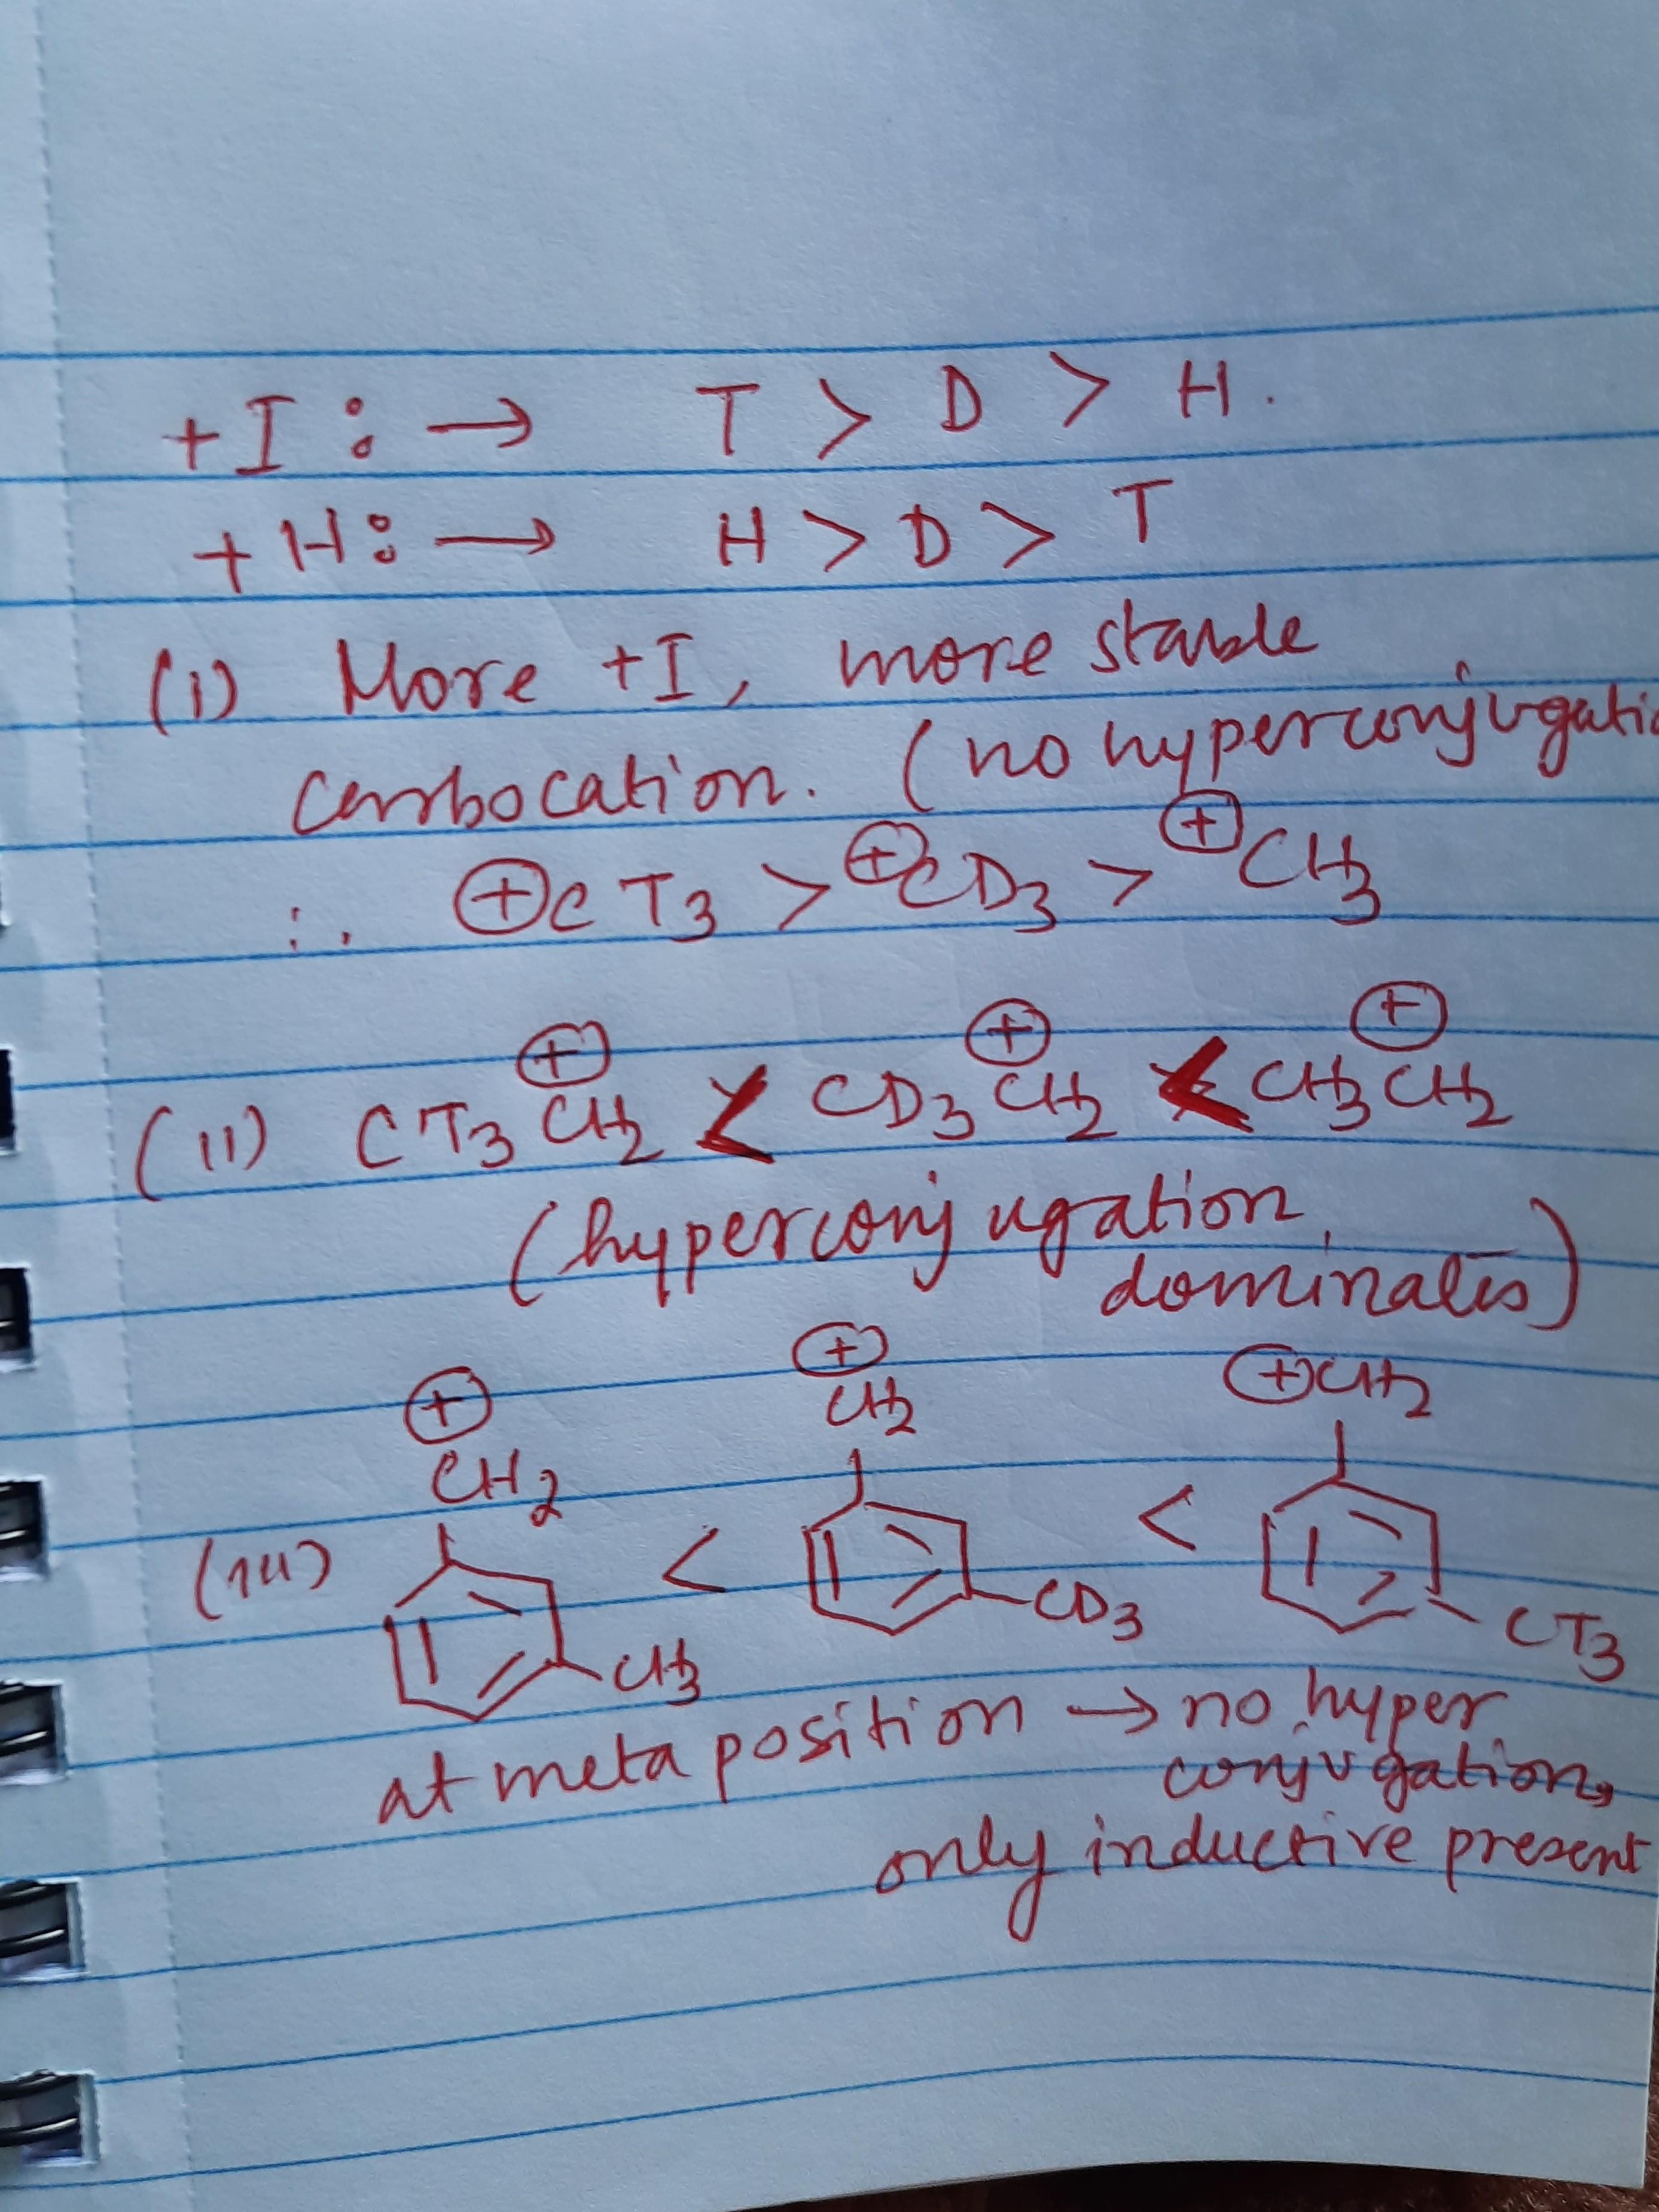 +I : → T > D > H.
+H : → H > D > T
(i) More +I, more stable
carbocation. (no hyperconjugatio
∴ ⊕CT3 > ⊕CD3 > ⊕CH3
(ii) CT3 C⊕H2 < CD3 C⊕H2 < CH3 C⊕H2
(hyperconjugation
dominates)
⊕ ⊕ ⊕CH2
CH2 CH2
(iii) < <
CH3 CD3 CT3
at meta position → no hyper
conjugation,
only inductive present